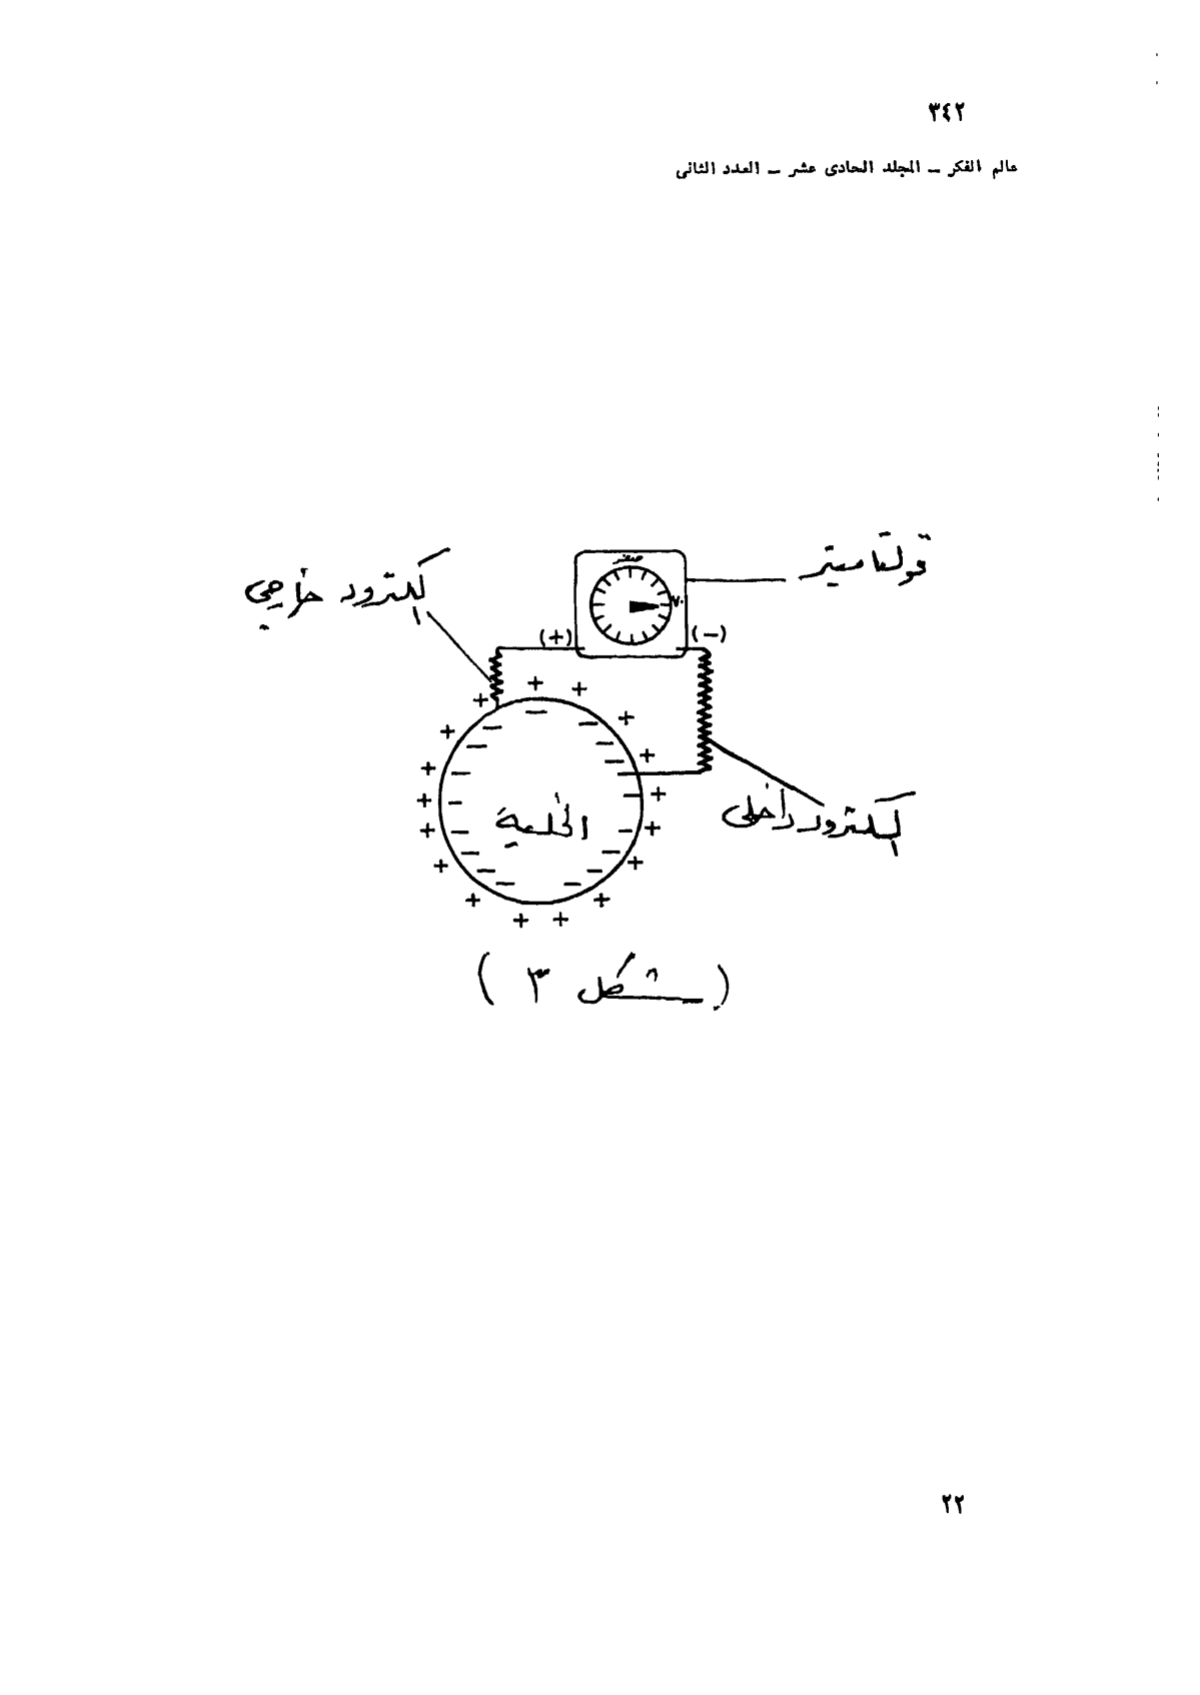 ٣٤٢
عالم الفكر ــ المجلد الحادى عشر ــ العدد الثانى
ڤولتاميتر
صفر
٧٠
الكترود خارجى
(+)
(−)
+ + + + + + + + + + + + + + + + + + +
− − − − − − − − − − − − − − − − − −
الخلية
اليكترود داخلى
(شكل ٣)
٢٢